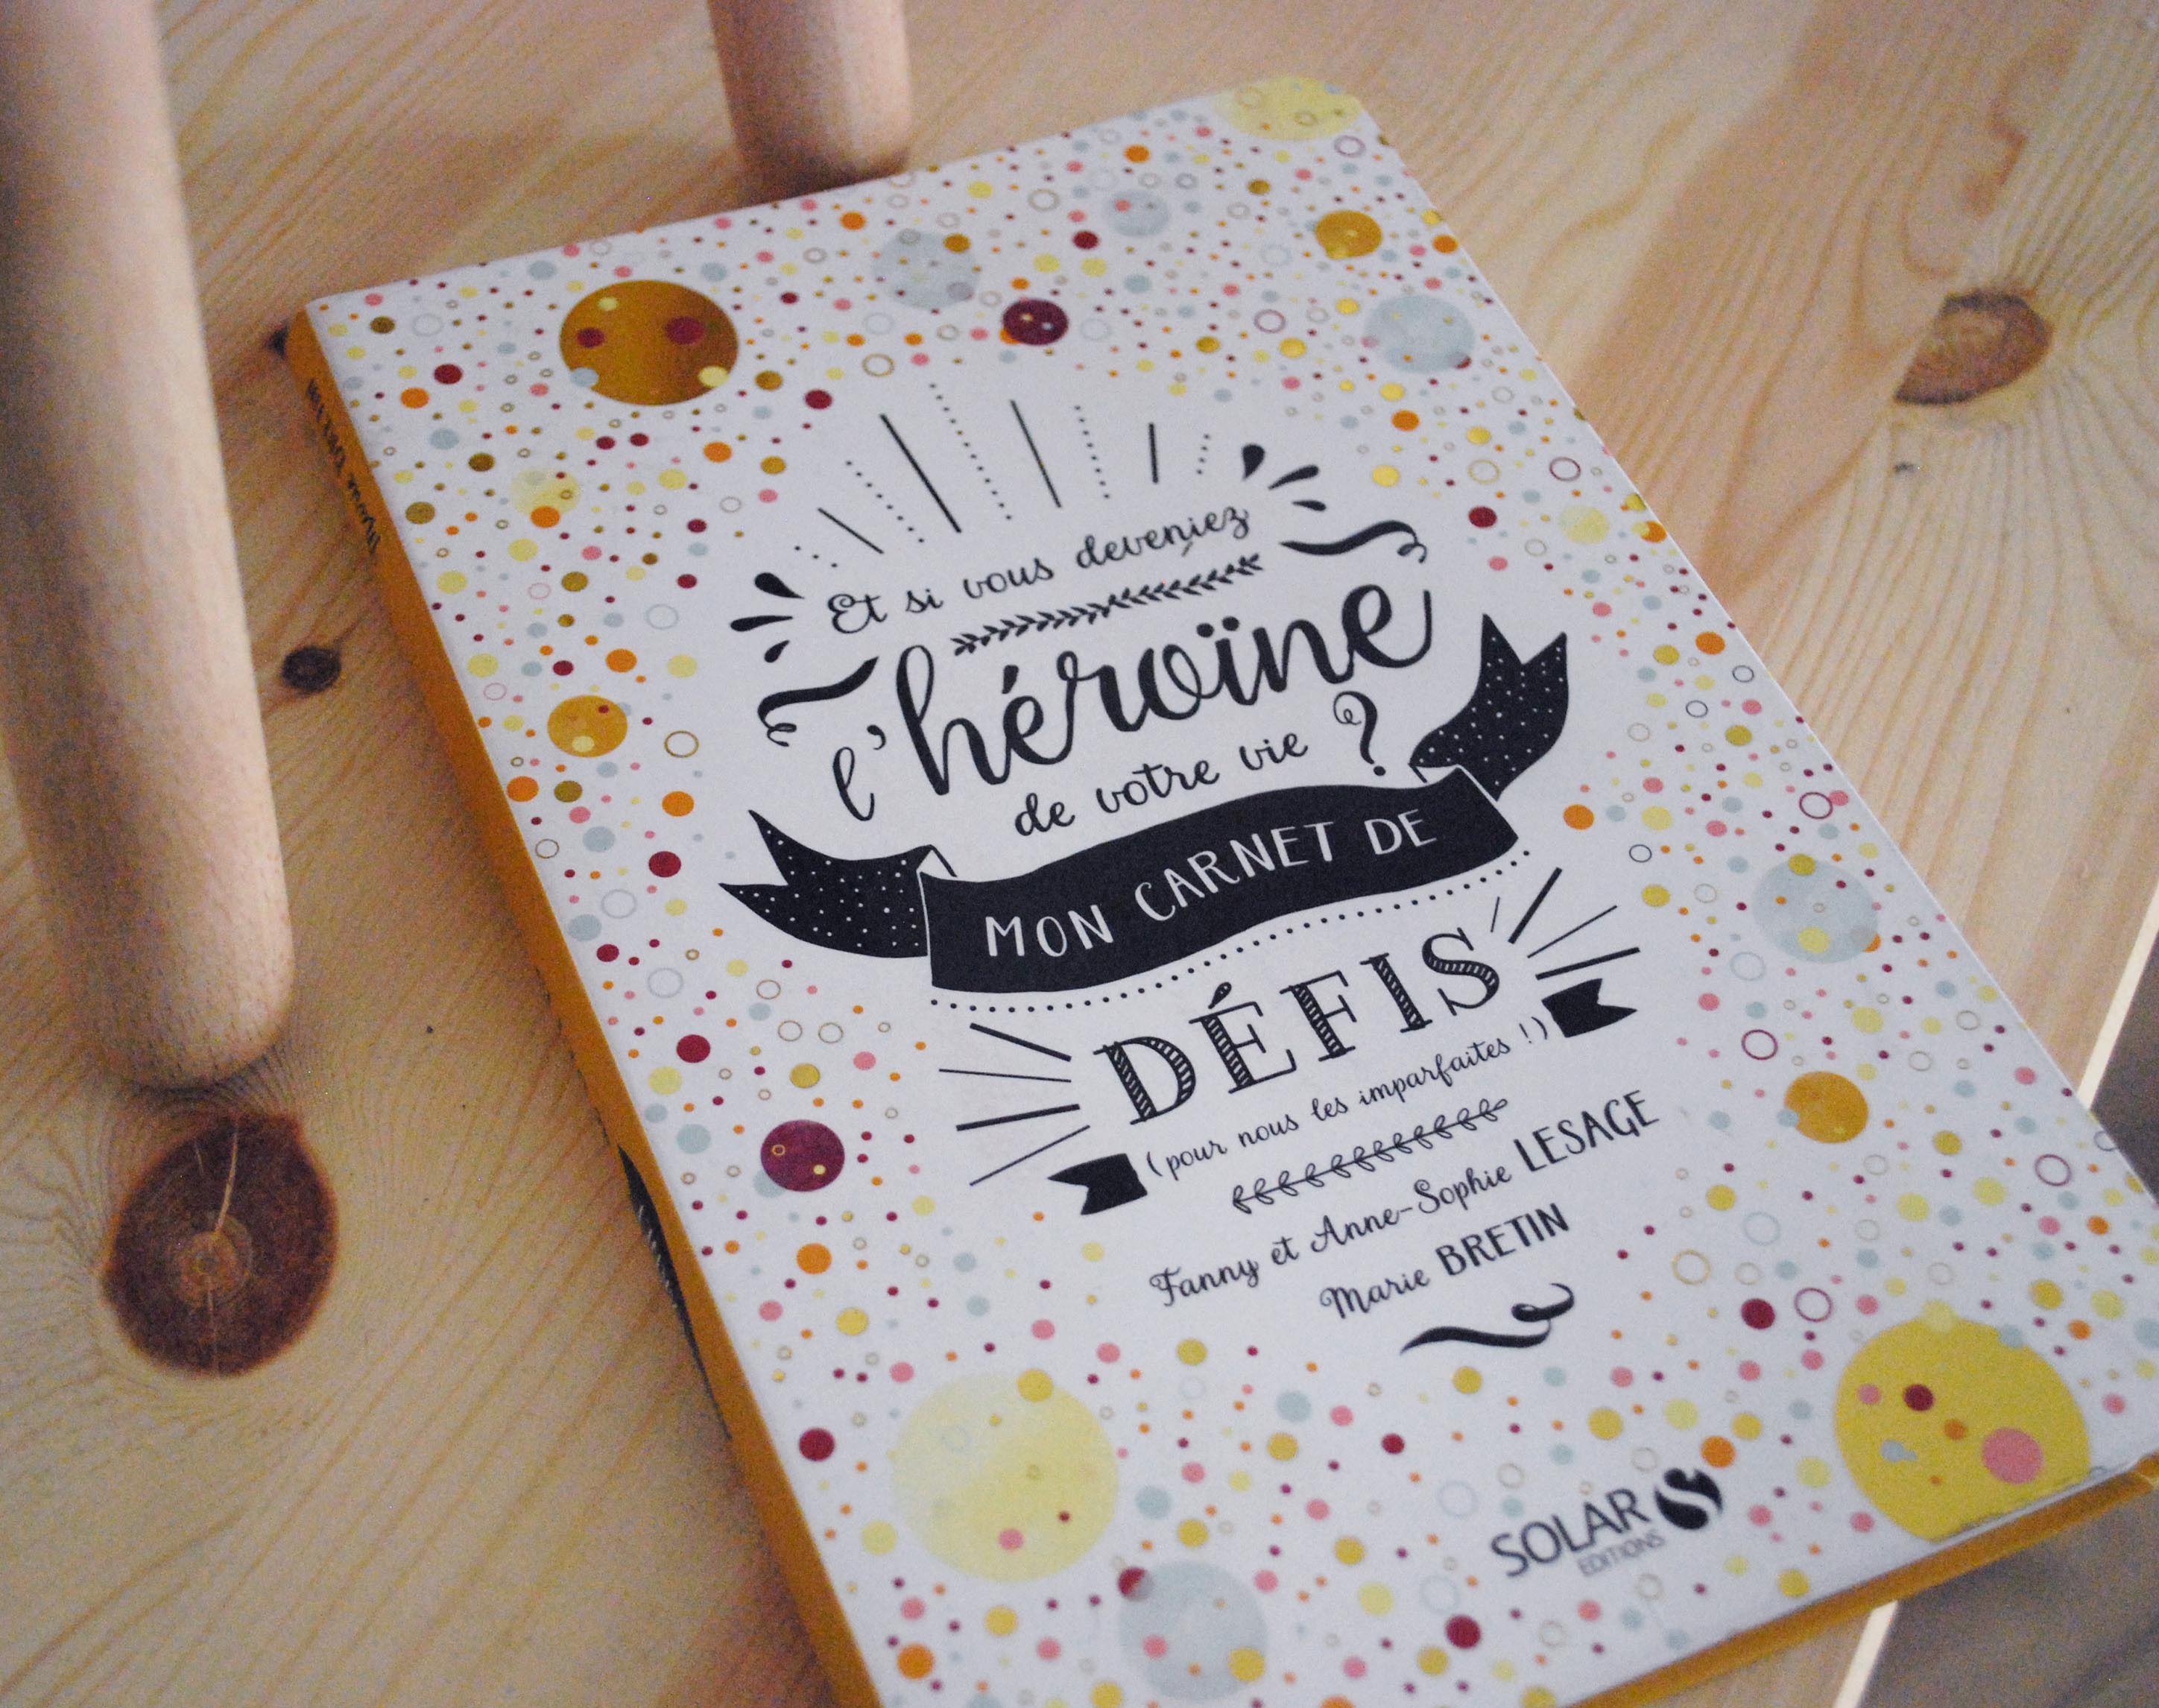 Et si vous deveniez
l'héroïne
de votre vie ?
MON CARNET DE
DÉFIS
(pour nous les imparfaites !)
Fanny et Anne-Sophie LESAGE
Marie BRETIN
SOLAR
EDITIONS